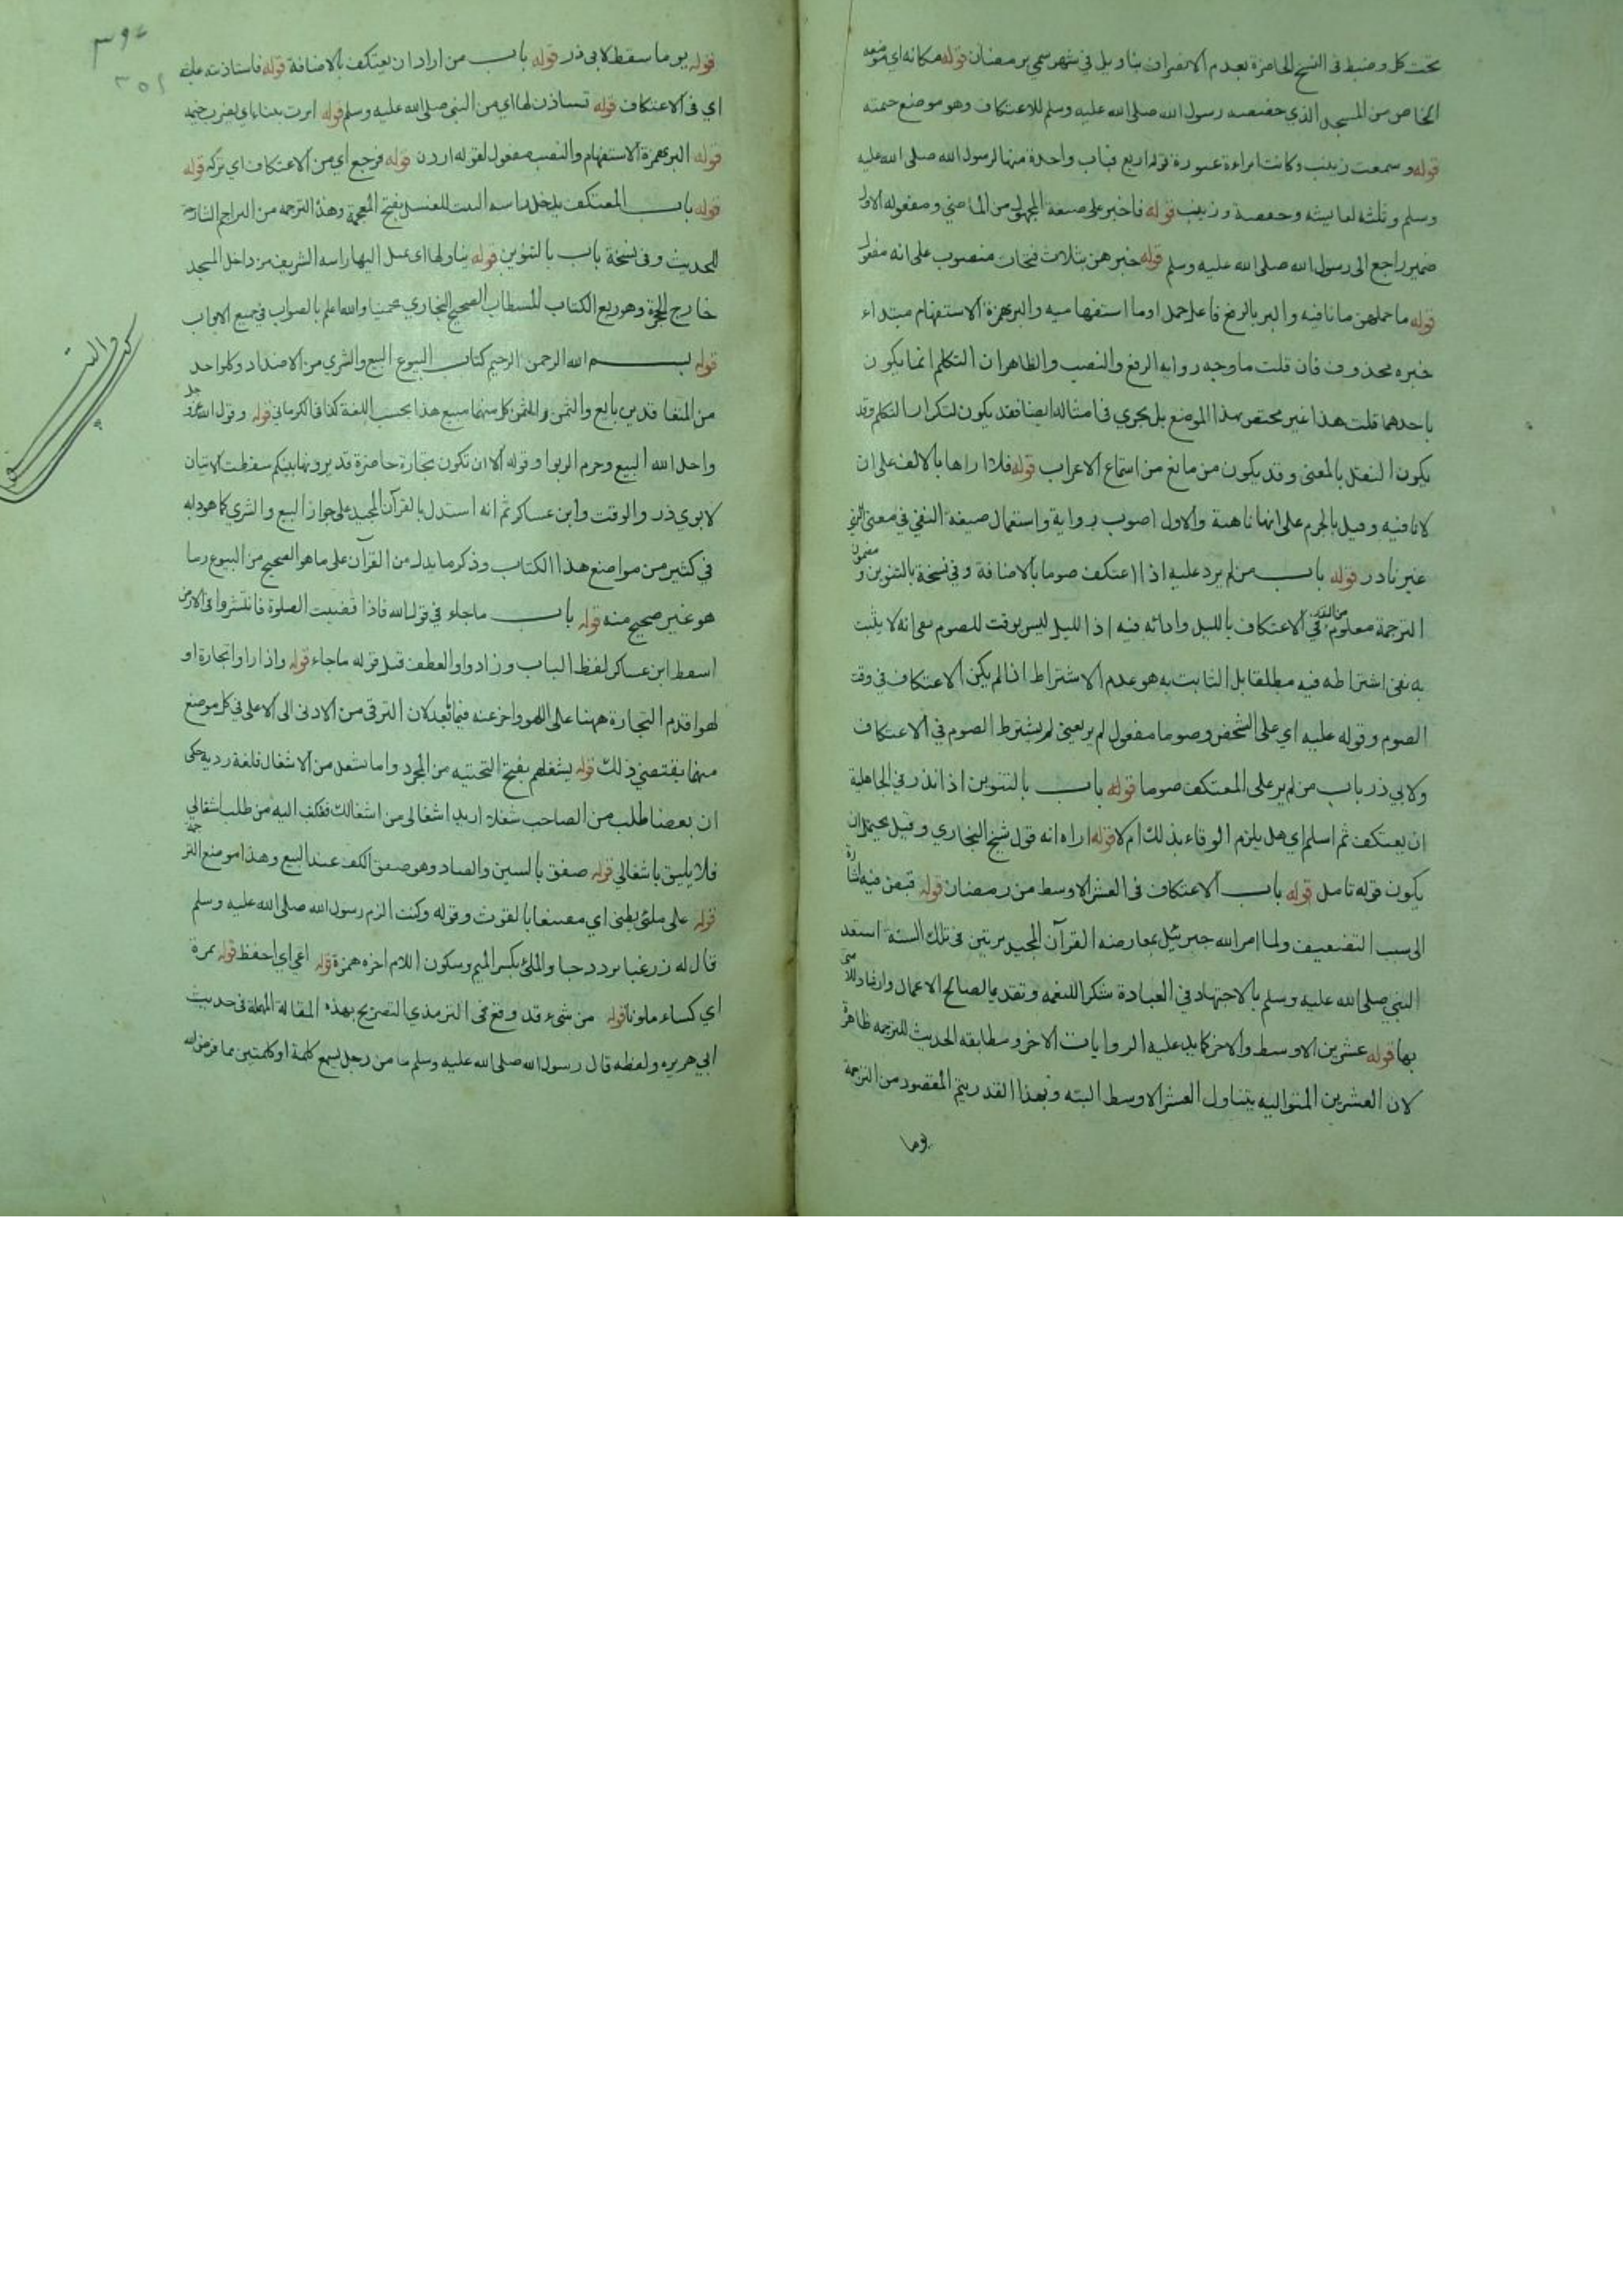 تحت كل وضبط فى النسخ الحاضرة بعدم الانصراف بتاويل فى شهر سمي برمضان قوله مكانه اي موضعه
الخاص من المسجد الذي خصصه رسول الله صلى الله عليه وسلم للاعتكاف وهو موضع خيمته
قوله وسمعت زينب وكانت امراءة غيورة قوله اربع قباب واحدة منها لرسول الله صلى الله عليه
وسلم وثلثة لعايشة وحفصة وزينب قوله فاخبر على صيغة المجهول من الماضي ومفعوله الاول
ضمير راجع الى رسول الله صلى الله عليه وسلم قوله خبرهن بثلاث فتحات منصوب على انه مفعول
قوله ما حملهن ما نافيه والبر بالرفع فاعل حمل او ما استفهاميه والبر بهمزة الاستفهام مبتداء
خبره محذوف فان قلت ما وجه روايه الرفع والنصب والظاهر ان التكلم انما يكون
باحدهما قلت هذا غير مختص بهذا الموضع بل يجري فى امثاله ايضا فقد يكون لتكرار التكلم وقد
يكون النقل بالمعنى وقد يكون من مانع من استماع الاعراب قوله فلا اراها بالالف على ان
لا نافيه وقيل بالجزم على انها ناهية والاول اصوب رواية واستعمال صيغة النفي فى معنى النهي
غير نادر قوله باب من لم يرد عليه اذا اعتكف صوما بالاضافة وفي نسخة بالتنوين و مضمون
الترجمة معلوم من النذر في الاعتكاف بالليل وادائه فيه اذ الليل ليس بوقت للصوم نعم انه لا يثبت
به نفى اشتراطه فيه مطلقا بل الثابت به هو عدم الاشتراط اذا لم يكن الاعتكاف فى وقت
الصوم وقوله عليه اي على الشخص وصوما مفعول لم ير يعنى لم يشترط الصوم في الاعتكاف
ولابي ذر باب من لم ير على المعتكف صوما قوله باب بالتنوين اذا نذر في الجاهلية
ان يعتكف ثم اسلم اي هل يلزم الوفاء بذلك ام لا قوله اراه انه قول شيخ البخاري وقيل يحتمل ان
يكون قوله تامل قوله باب الاعتكاف فى العشر الاوسط من رمضان قوله قبض فيه اشارة
الى سبب التضعيف ولما امر الله جبرئيل بمعارضة القرآن المجيد مرتين فى تلك السنة استعد
النبي صلى الله عليه وسلم بالاجتهاد في العبادة شكرا للنعمة وتقديما لصالح الاعمال وارشادا للامتى
بها قوله عشرين الاوسط والاخر كما يدل عليه الروايات الاخر ومطابقة الحديث للترجمه ظاهرة
لان العشرين المتواليه يتناول العشر الاوسط البته وبهذا القدر يتم المقصود من الترجمة
يوما
قوله يوما سقط لابى ذر قوله باب من اراد ان يعتكف بالاضافة قوله فاستاذنته عايشة
اي فى الاعتكاف قوله تستاذن لها اي من النبي صلى الله عليه وسلم قوله امرت ببناء اي بضرب خيمة
قوله البر بهمزة الاستفهام والنصب مفعول لقوله اردن قوله فرجع اي من الاعتكاف اي تركه قوله
قوله باب المعتكف يدخل راسه البيت للغسل بفتح المعجمة وهذا الترجمه من التراجم الشارحة
للحديث وفى نسخة باب بالتنوين قوله يناولها اى يميل اليها راسه الشريف من داخل المسجد
خارج الحجرة وهو ربع الكتاب المستطاب الصحيح البخاري تخمينا والله اعلم بالصواب فى جميع الابواب
قوله بسم الله الرحمن الرحيم كتاب البيوع البيع والشري من الاضداد وكل واحد
من المتعاقدين بايع والثمن والمثمن كل منهما مبيع هذا بحسب اللغة كذا فى الكرماني قوله وقول الله عز وجل
واحل الله البيع وحرم الربوا وقوله الا ان تكون تجارة حاضرة تديرونها بينكم سقطت الايتان
لابوي ذر والوقت وابن عساكر ثم انه استدل بالقرآن المجيد على جواز البيع والشري كما هو دابه
في كثير من مواضع هذا الكتاب وذكر ما يدل من القرآن على ما هو الصحيح من البيوع وما
هو غير صحيح منه قوله باب ما جاء في قول الله فاذا قضيت الصلوة فانتشروا فى الارض
اسقط ابن عساكر لفظ الباب وزاد واو العطف قبل قوله ما جاء قوله واذا راوا تجارة او
لهوا قدم التجارة ههنا على اللهو واخر عنه فيما بعد لان الترقى من الادنى الى الاعلى فى كل موضع
منهما يقتضي ذلك قوله يشغلهم بفتح التحتيه من المجرد واما يشغل من الاشغال فلغة ردية حكى
ان بعضا طلب من الصاحب شغلا اريد اشغالى من اشغالك فكتب اليه من طلب اشغالي
فلا يليق باشغالي قوله صفق بالسين والصاد وهو صفق الكف عند البيع وهذا موضع الترجمة
قوله على ملئ بطنى اي مقتنعا بالقوت وقوله وكنت الزم رسول الله صلى الله عليه وسلم
قال له زر غبا تردد حبا والملئ بكسر الميم وسكون اللام اخره همزة قوله اعي اي احفظ قوله نمرة
اي كساء ملونا قوله من شيء قد وقع فى الترمذي التصريح بهذه المقالة المهملة فى حديث
ابي هريره ولفظه قال رسول الله صلى الله عليه وسلم ما من رجل يسمع كلمة او كلمتين مما فرض الله